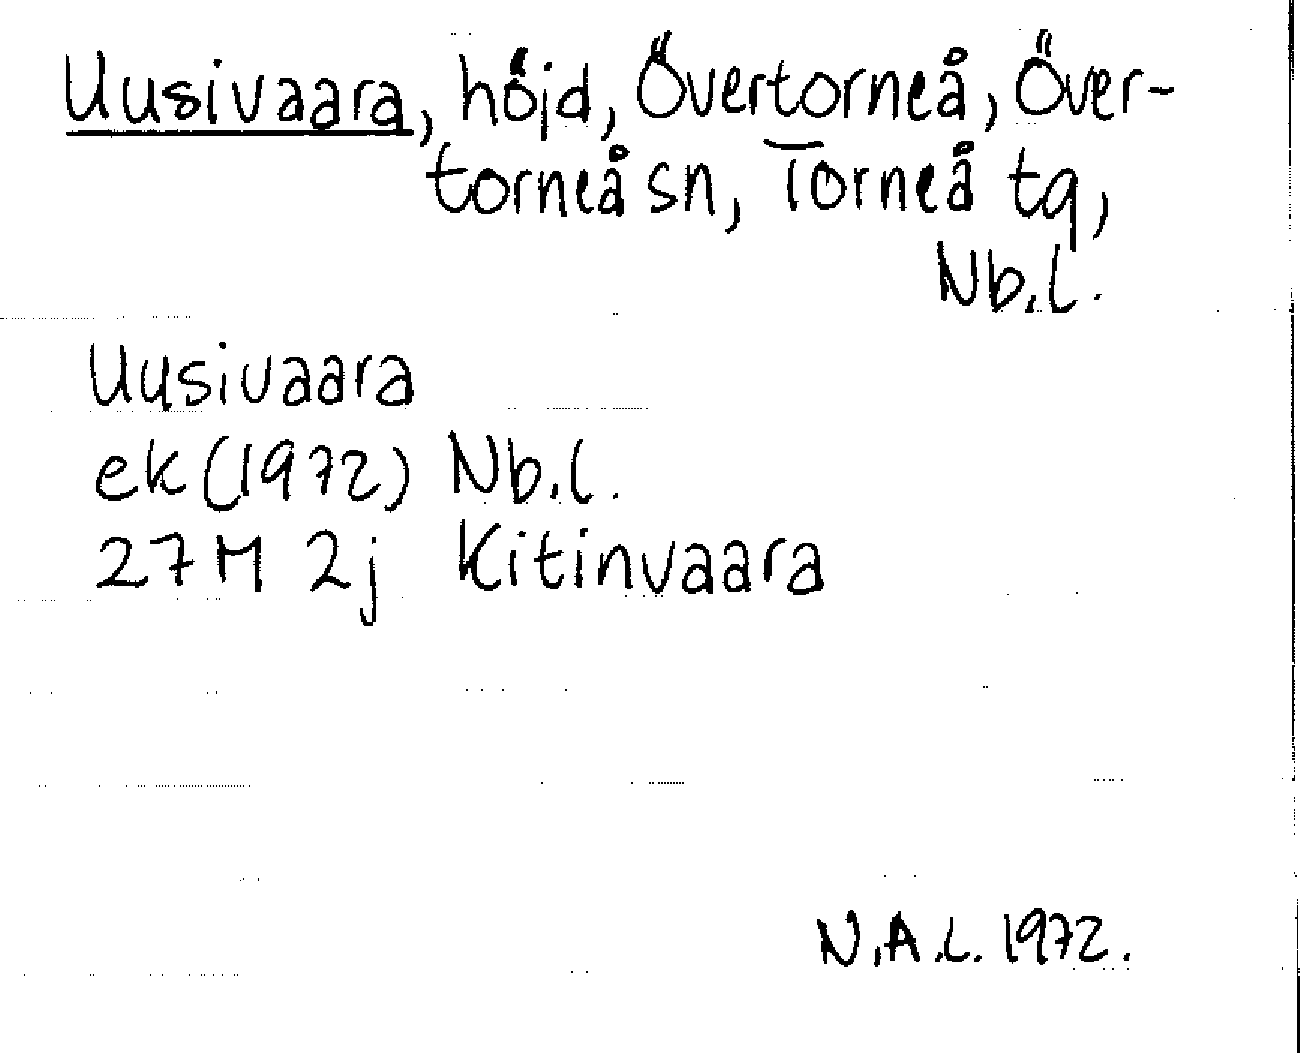 Uusivaara, höjd, Övertorneå, Över-
torneå sn, Torneå tg,
Nb.l.
Uusivaara
ek (1972) Nb.l.
27 M 2j Kitinvaara
N.A.L. 1972.